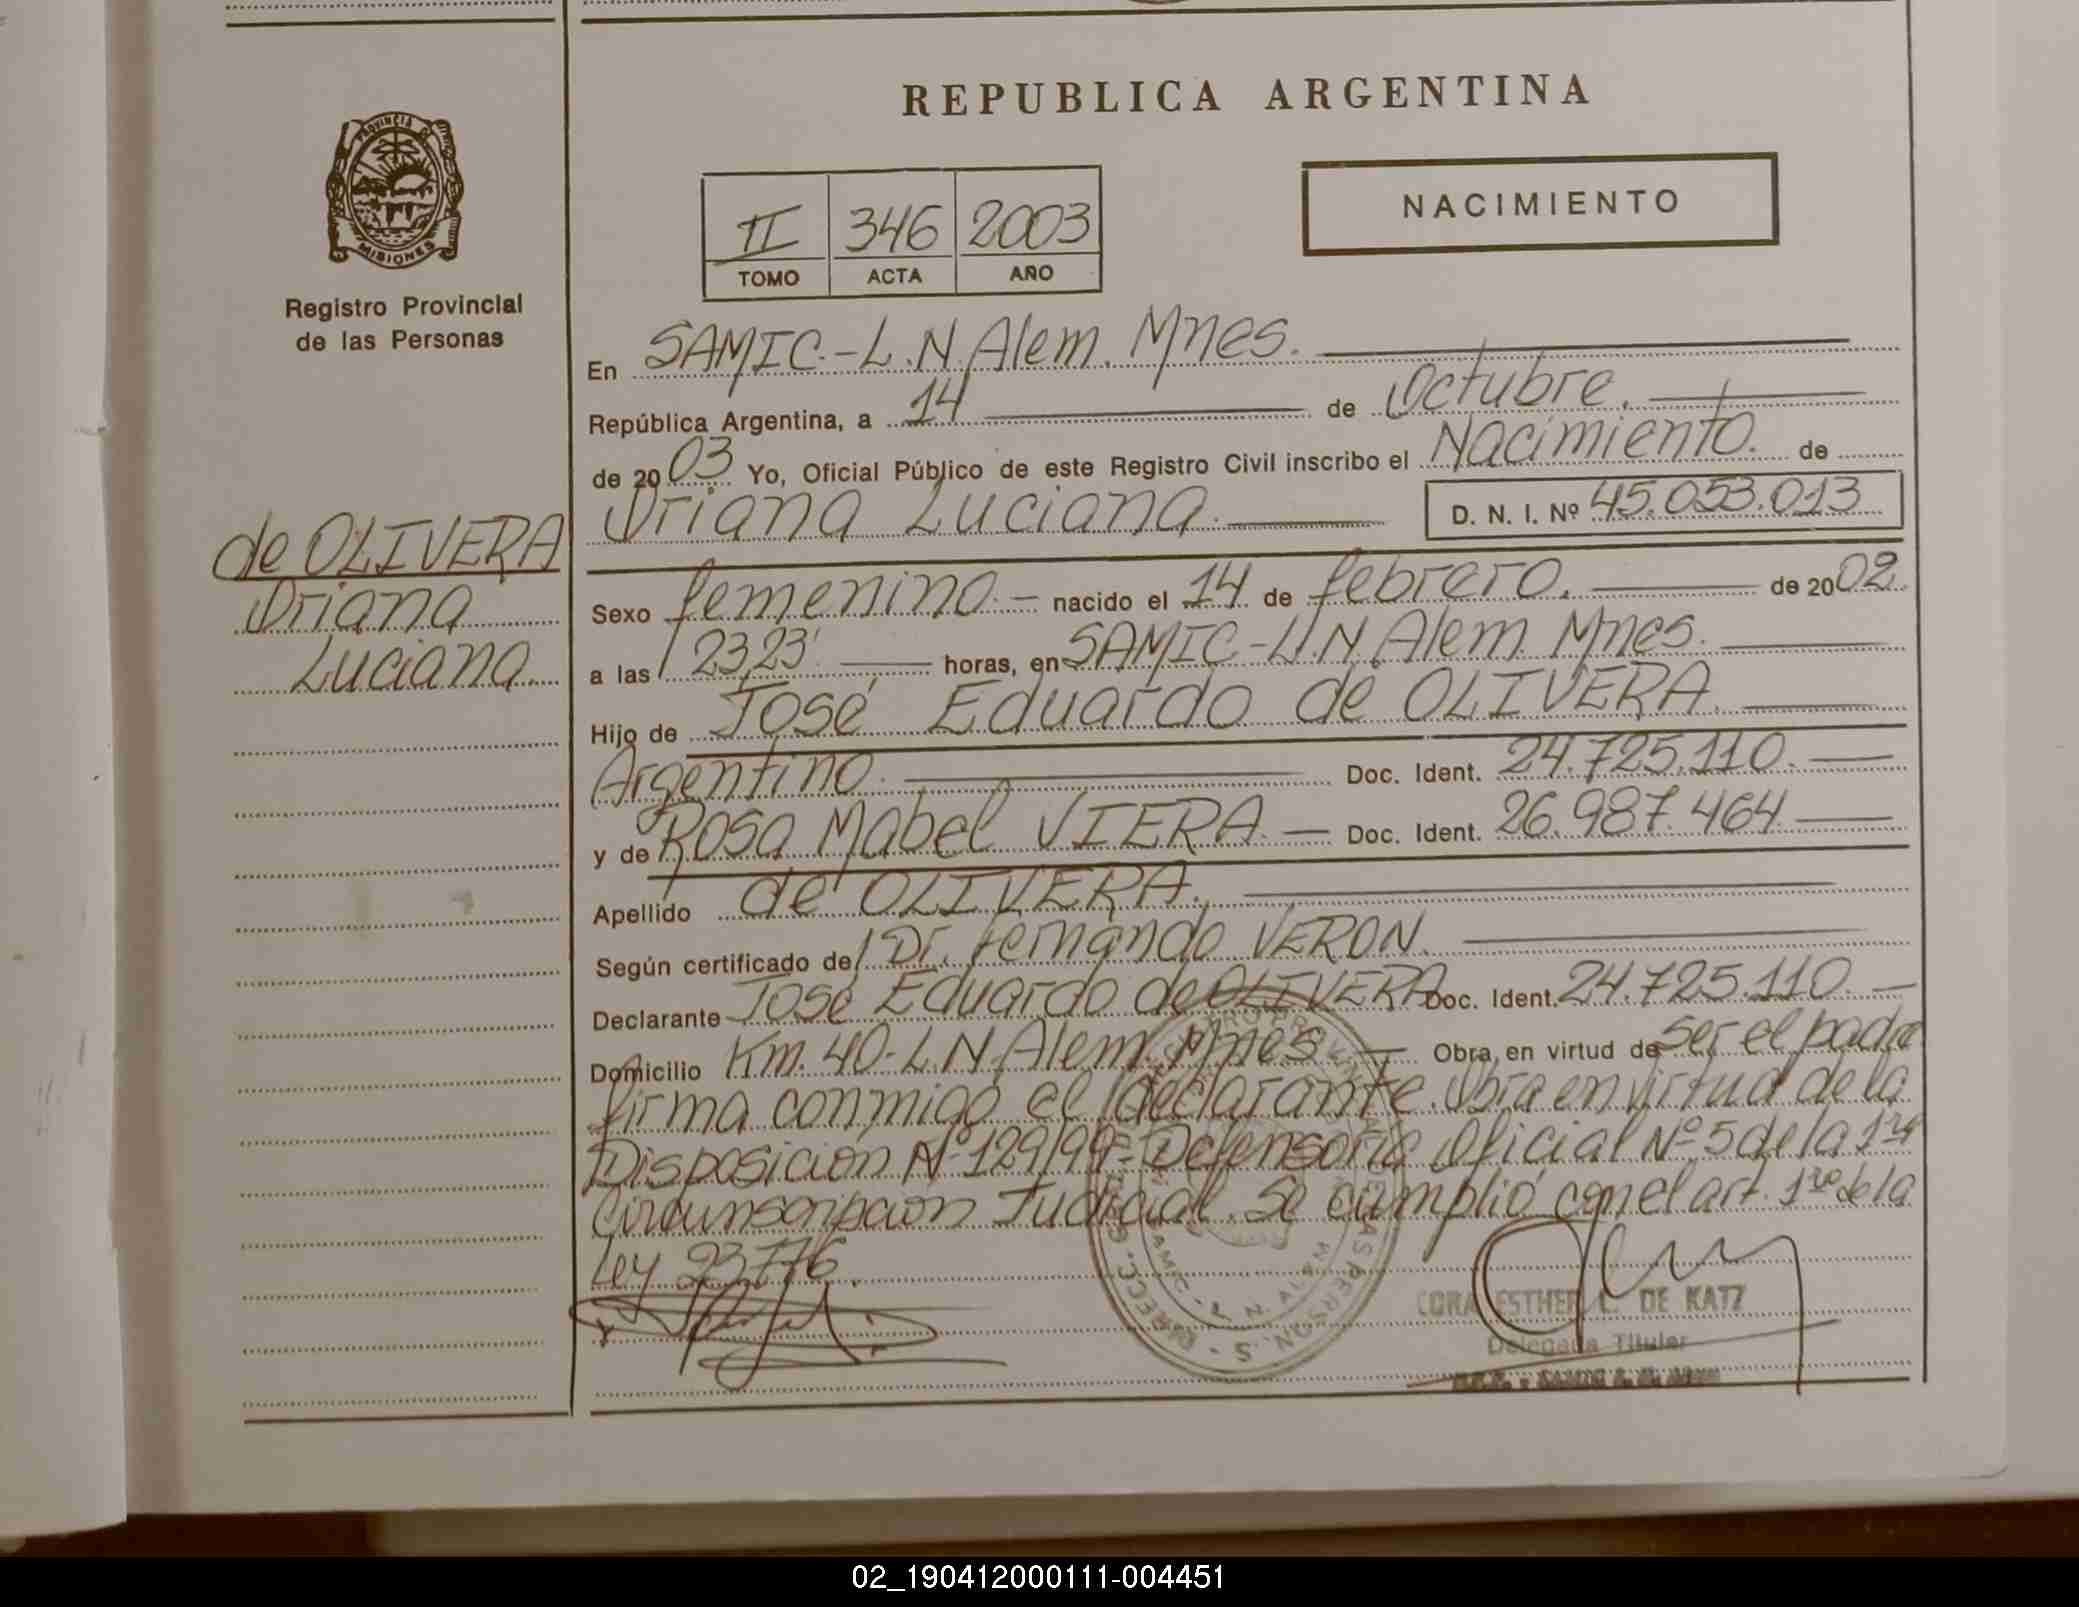 REPUBLICA ARGENTINA
PROVINCIA DE
MISIONES
Registro Provincial
de las Personas
II 346 2003
TOMO ACTA AÑO
NACIMIENTO
de OLIVERA
Oriana
Luciana
En SAMIC.-L.N.Alem. Mnes.
República Argentina, a 14 de Octubre.
de 2003 Yo, Oficial Público de este Registro Civil inscribo el Nacimiento. de
Oriana Luciana. D. N. I. Nº 45.053.013
Sexo femenino.- nacido el 14 de febrero. de 2002.
a las 23,23' horas, en SAMIC-L.N.Alem. Mnes.
Hijo de José Eduardo de OLIVERA.
Argentino. Doc. Ident. 24.725.110.
y de Rosa Mabel VIERA.- Doc. Ident. 26.987.464
Apellido de OLIVERA.
Según certificado de Dr. Fernando VERON.
Declarante José Eduardo de OLIVERA Doc. Ident. 24.725.110.-
Domicilio Km. 40-L.N.Alem. Mnes- Obra en virtud de ser el padre
firma conmigo el declarante. Obra en virtud de la
Disposición Nº 129/99= Defensoría Oficial Nº 5 de la 1ra
Circunscripción Judicial. Se cumplió con el art. 1ro de la
Ley 23776.
CORA ESTHER L. DE KATZ
Delegada Titular
02_190412000111-004451